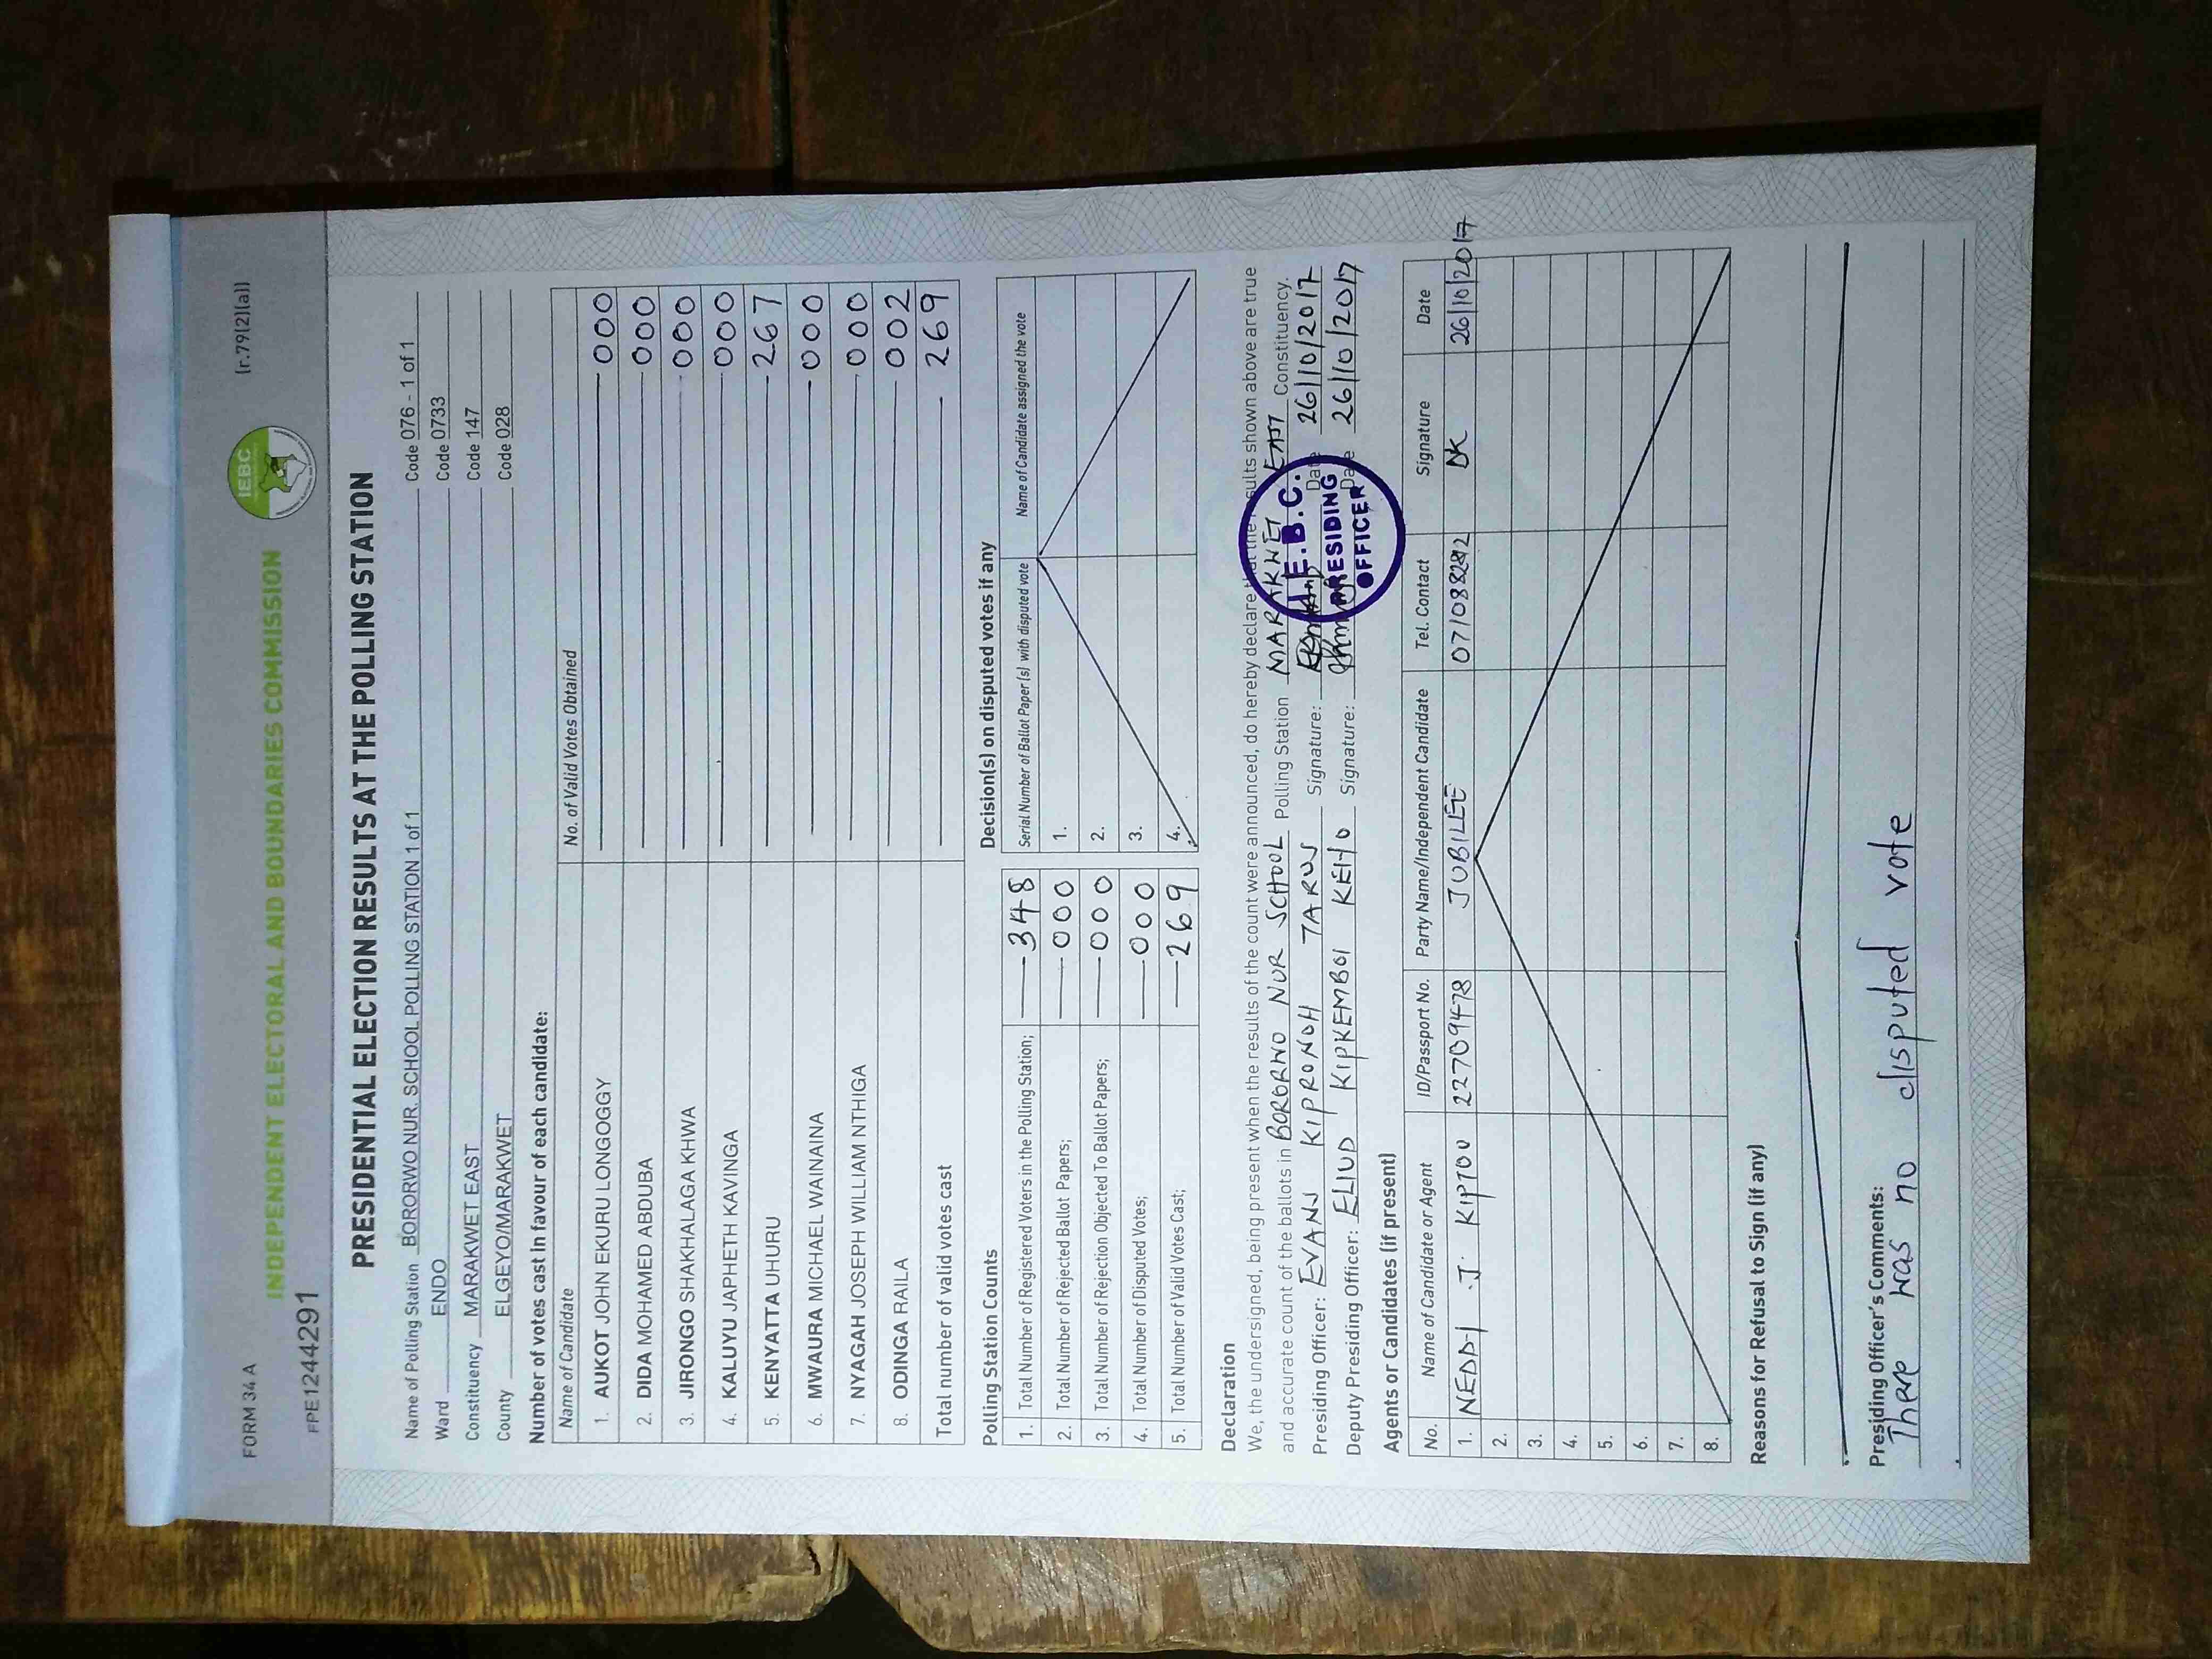 FORM 34 A
(r.79(2)(a))
IEBC
INDEPENDENT ELECTORAL AND BOUNDARIES COMMISSION
FPE1244291
PRESIDENTIAL ELECTION RESULTS AT THE POLLING STATION
Name of Polling Station BORORWO NUR. SCHOOL POLLING STATION 1 of 1 Code 076 - 1 of 1
Ward ENDO Code 0733
Constituency MARAKWET EAST Code 147
County ELGEYO/MARAKWET Code 028
Number of votes cast in favour of each candidate:
Name of Candidate No. of Valid Votes Obtained
1. AUKOT JOHN EKURU LONGOGGY 000
2. DIDA MOHAMED ABDUBA 000
3. JIRONGO SHAKHALAGA KHWA 000
4. KALUYU JAPHETH KAVINGA 000
5. KENYATTA UHURU 267
6. MWAURA MICHAEL WAINAINA 000
7. NYAGAH JOSEPH WILLIAM NTHIGA 000
8. ODINGA RAILA 002
Total number of valid votes cast 269
Polling Station Counts
1. Total Number of Registered Voters in the Polling Station; 348
2. Total Number of Rejected Ballot Papers; 000
3. Total Number of Rejection Objected To Ballot Papers; 000
4. Total Number of Disputed Votes; 000
5. Total Number of Valid Votes Cast; 269
Decision(s) on disputed votes if any
Serial Number of Ballot Paper(s) with disputed vote Name of Candidate assigned the vote
1.
2.
3.
4.
Declaration
We, the undersigned, being present when the results of the count were announced, do hereby declare that the results shown above are true
and accurate count of the ballots in BORORWO NUR SCHOOL Polling Station MARAKWET EAST Constituency.
Presiding Officer: EVANS KIPRONOH TARUS Signature: Date 26/10/2017
Deputy Presiding Officer: ELIUD KIPKEMBOI KEIYO Signature: Date 26/10/2017
I.E.B.C.
PRESIDING
OFFICER
Agents or Candidates (if present)
No. Name of Candidate or Agent ID/Passport No. Party Name/Independent Candidate Tel. Contact Signature Date
1. NEDDY J. KIPTOO 22709478 JUBILEE 26/10/2017
2.
3.
4.
5.
6.
7.
8.
Reasons for Refusal to Sign (if any)
Presiding Officer's Comments:
There was no disputed vote